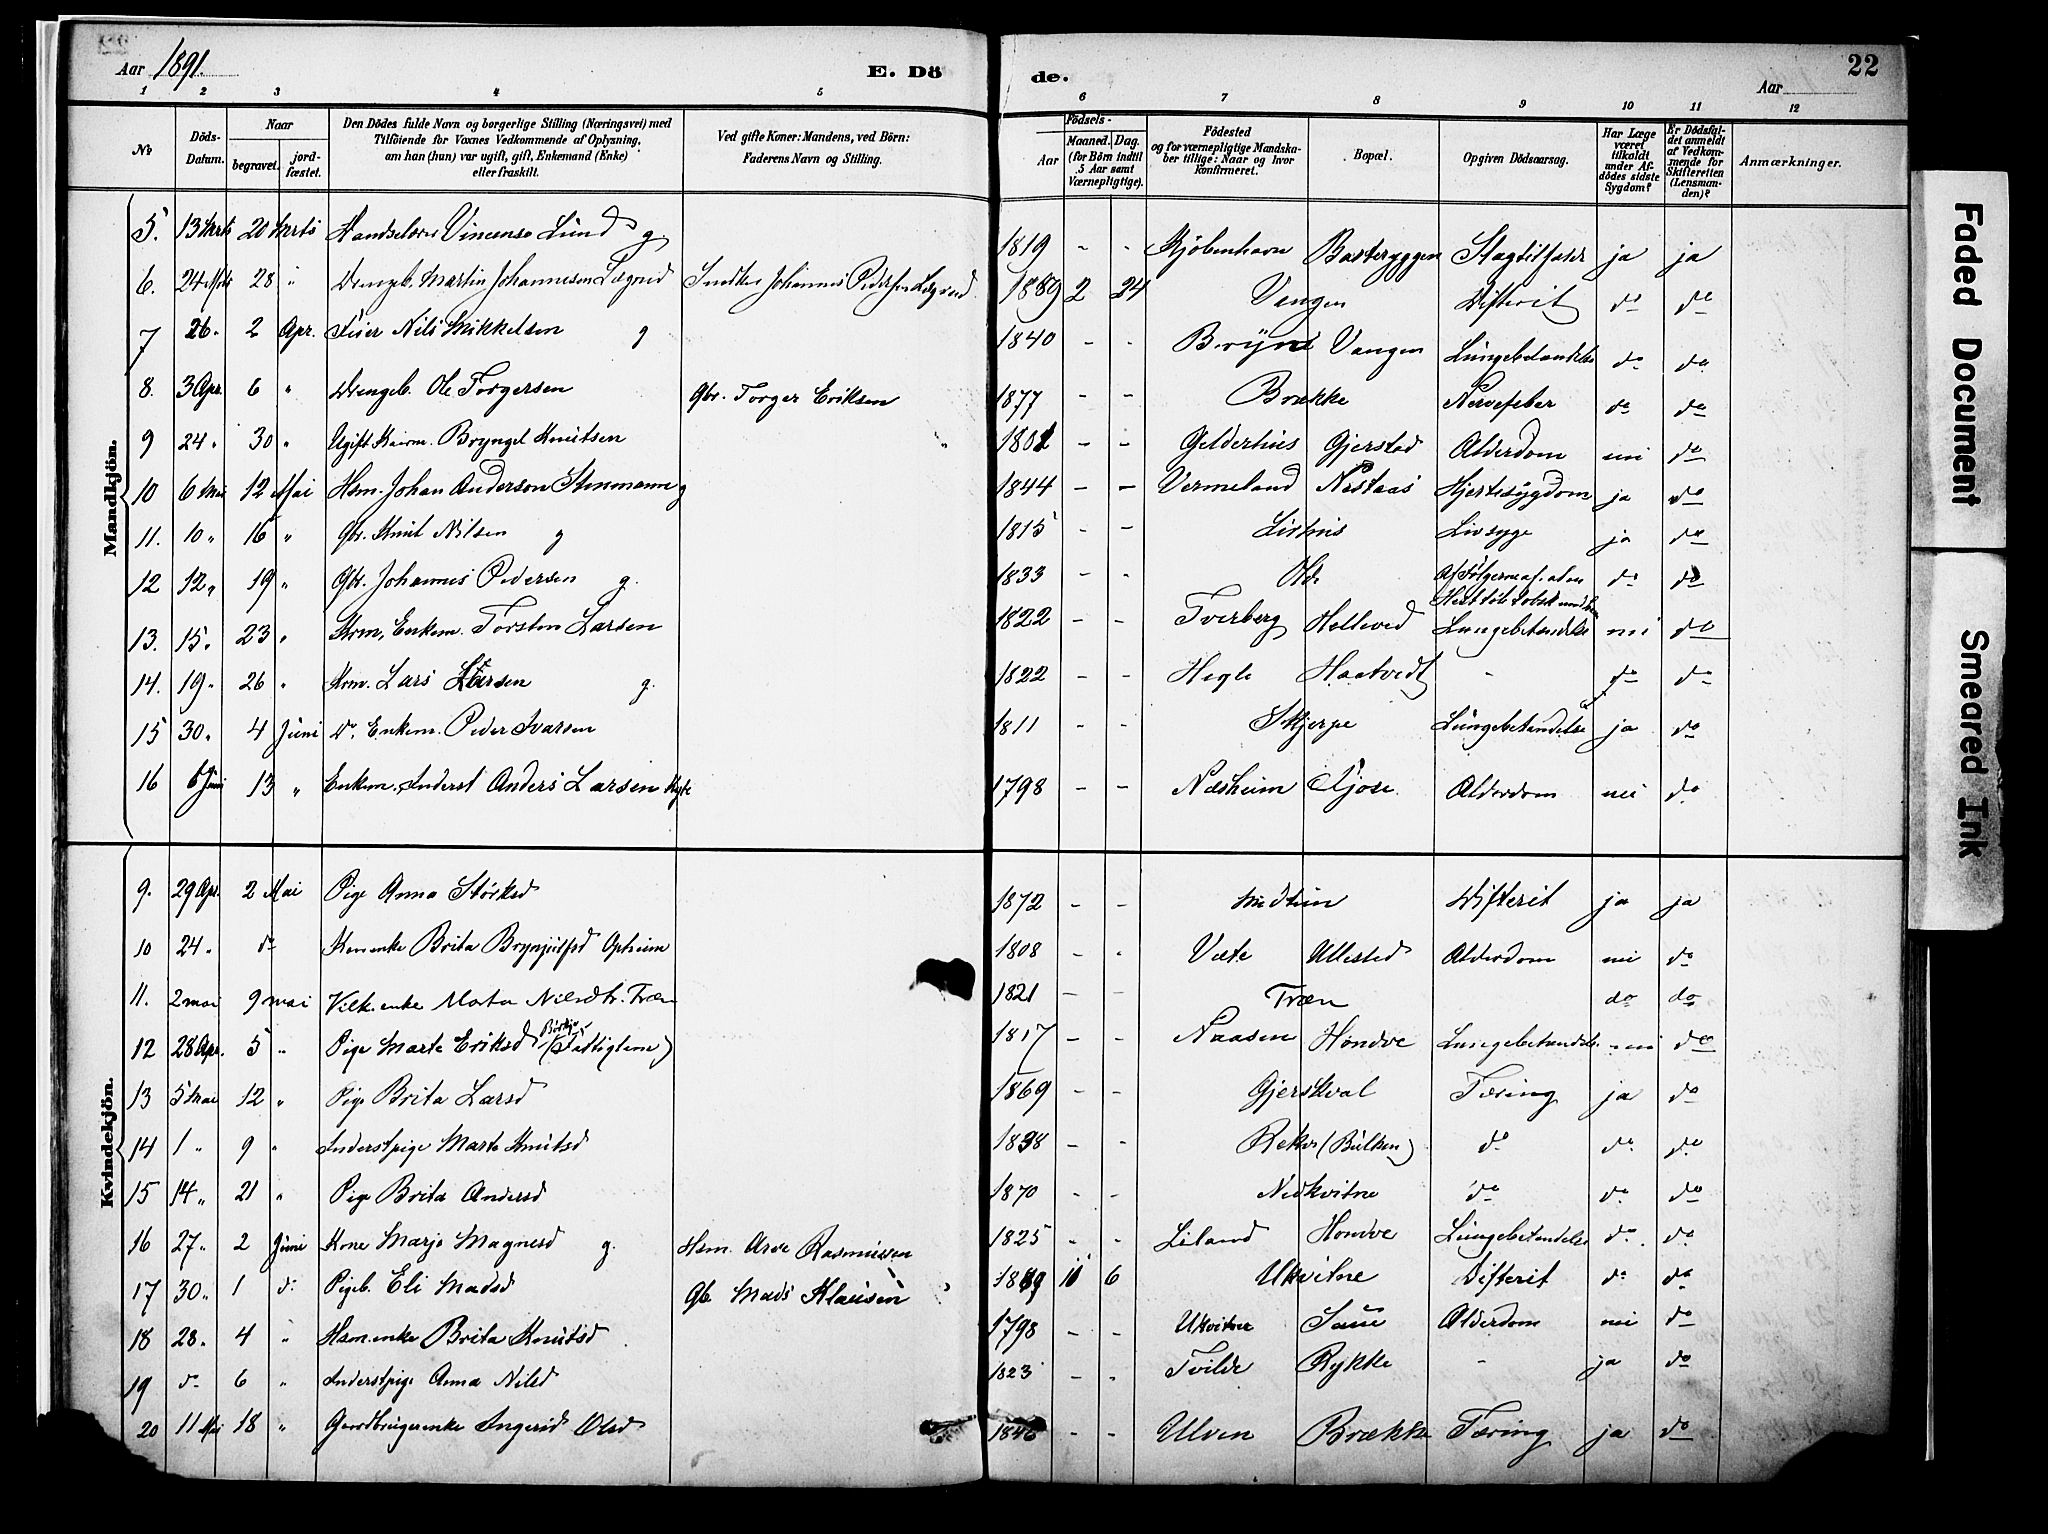 Aar 1891. E. Dö de. Aar 22
1 2 3 4 5 6 7 8 9 10 11 12
No
Döds-Datum.
Naar
begravet. jord-fæstet.
Den Dödes fulde Navn og borgerlige Stilling (Næringsvei) med Tilföiende for Voxnes Vedkommende af Oplysning, om han (hun) var ugift, gift, Enkemand (Enke) eller fraskilt.
Ved gifte Koner: Mandens, ved Börn: Faderens Navn og Stilling.
Födsels-
Aar Maaned. Dag.
(for Börn indtil 5 Aar samt Værnepligtige).
Födested og for værnepligtige Mandska-ber tillige: Naar og hvor konfirmeret.
Bopæl.
Opgiven Dödsaarsag.
Har Læge været tilkaldt under Af-dödes sidste Sygdom?
Er Dödsfal-det anmeldt af Vedkom-mende for Skifteretten (Lensman-den)?
Anmærkninger.
Mandkjön.
5. 13 Marts 20 Marts Vincens Lund g. 1819 - - Kjöbenhavn Slagtilfælde ja ja
6. 24 Mrts 28 " Drengeb. Martin Johannesen Johannes Pedersen 1889 2 24 Vangen Difterit do do
7 26. 2 Apr. Nils Mikkelsen g 1840 - - Vangen Lungebetændelse do do
8. 3 Apr. 6 " Drengeb. Ole Torgersen Gbr. Torger Eriksen 1877 - - Brække Nervefeber do do
9 24 " 30 " Ugift Kaarm. Bryngel Knutsen " - - Gjelderhus Gjerstad Alderdom nei do
10 6 Mai 12 Mai Hsm. Johan Anderson g 1844 - - Vermeland Nestaas Hjertesygdom ja do
11. 10 " 16 " Gbr. Knut Nilsen g 1815 - - Lirhus ja do
12 12 " 19 " Gbr. Johannes Pedersen g. 1833 - - do do
13. 15. 23 " Krm, Enkem. Torsten Larsen 1822 - - Tverberg Helleved Lungebetændelse nei do
14. 19 " 26 " Krm. Lars Larsen g. 1822 - - Hegle Haatvedt - do do
15 30 " 4 Juni Do. Enkem. Peder Ivarsen 1811 - - Skjerpe Lungebetændelse ja do
16 6 Juni 13 " Enkem. Inderst Anders Larsen Kyte 1798 - - Næsheim Kjose Alderdom nei do
Kvindekjön.
9. 29 Apr. 2 Mai Pige Anna Störksd 1872 - - Midtun Difterit ja ja
10 24 " do Brita Brynjulfsd Opheim 1808 - - Væte Ullestad Alderdom nei do
11. 2 mai 9 mai Vilk.enke Marta Nilsdtr. Træn 1821 - - Træn do do
12 28 Apr. 5 " Pige Marta Eriksd (Fattiglem) 1817 - - Naasen Hondve Lungebetændelse nei do
13 5 Mai 12 " Pige Brita Larsd 1869 - - Gjerskval Tæring ja do
14 1 " 9 " Inderstpige Marta Knutsd 1838 - - Rekve (Bulken) do do do
15 14 " 21 " Pige Brita Andersd 1870 - - Nedkvitne do do do
16 27 " 2 Juni Kone Marjo Magnesd g. Hsm. Arve Rasmussen 1825 - - Liland Hondve Lungebetændelse do do
17 30 " 1 do Pigeb. Eli Madsd Gb. Mads Klausen 1889 10 6 Ukvitne Difterit do do
18 28 " 4 " Hsm.enke Brita Knutsd 1798 - - Ukvitne Saue Alderdom nei do
19 do 6 " Inderstpige Anna Nilsd 1823 - - Tvilde Rykke - ja do
20 11 Mai 18 " Gaardbrugerenke Ingerid Olsd - - Ulven Brække Tæring ja do
Faded Document
Smeared Ink